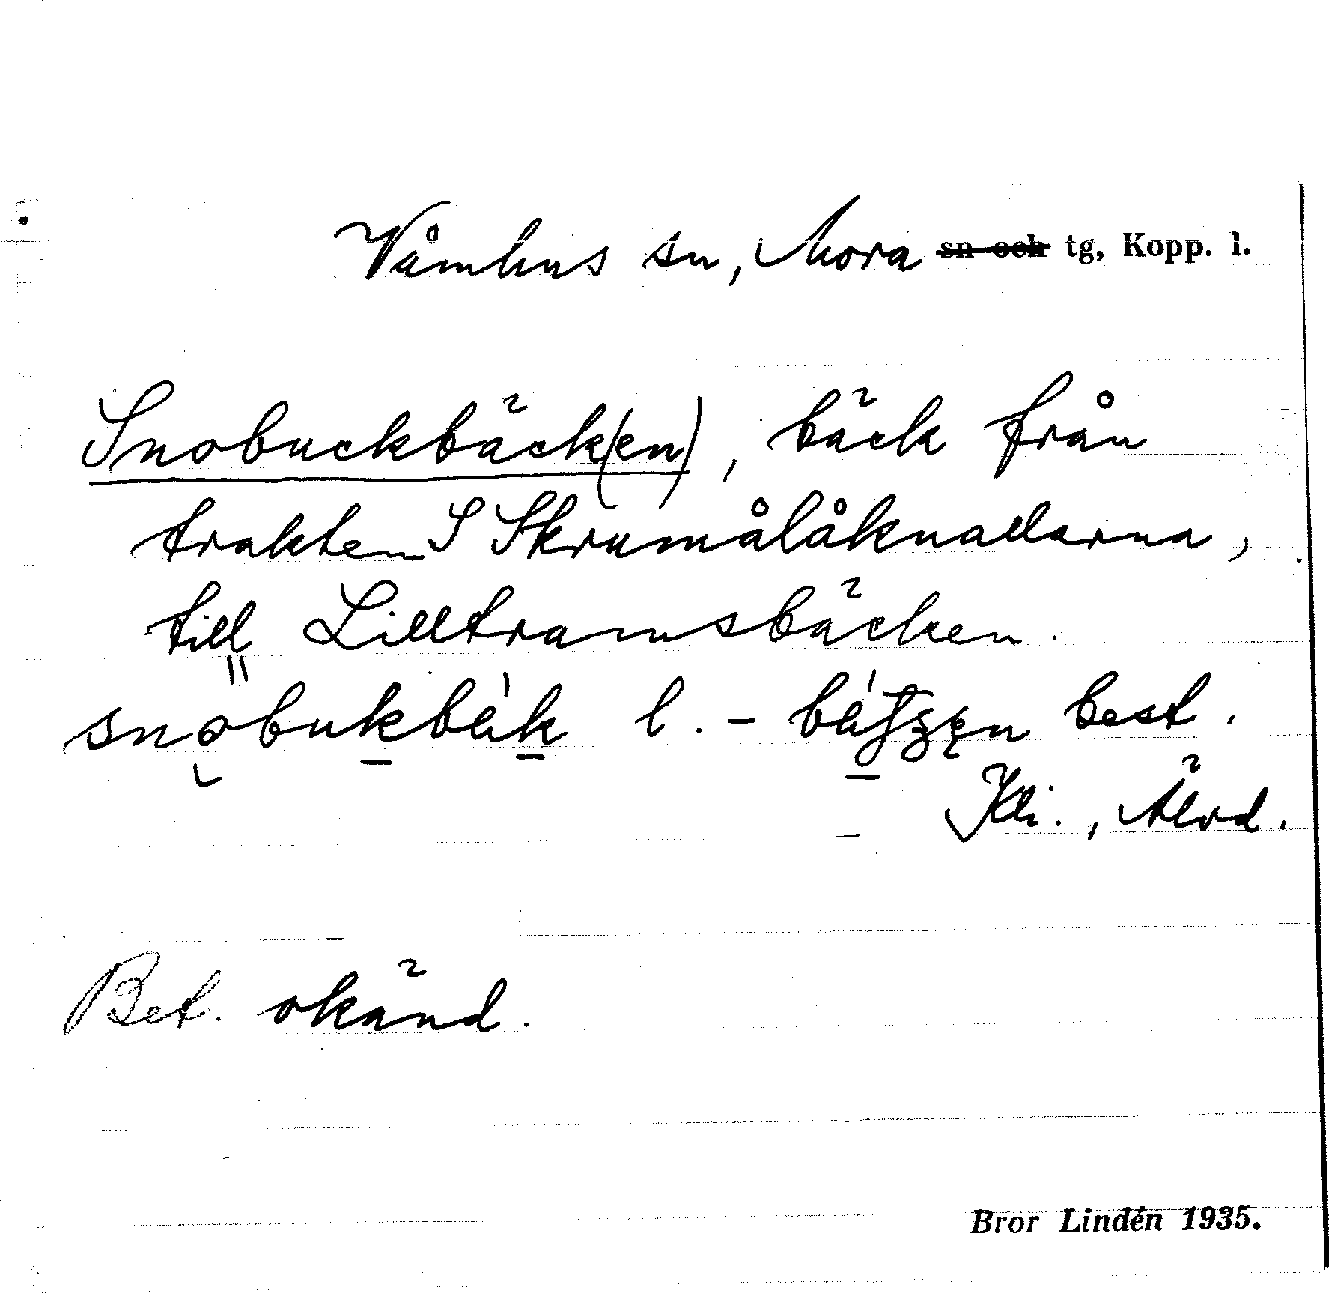 Våmhus sn, Mora sn och tg, Kopp. l.
Snobuckbäck(en), bäck från
trakten S Skrumålåknallarna,
till Lilltramsbäcken.
l. - best.
Älvd.
Bet. okänd.
Bror Lindén 1935.